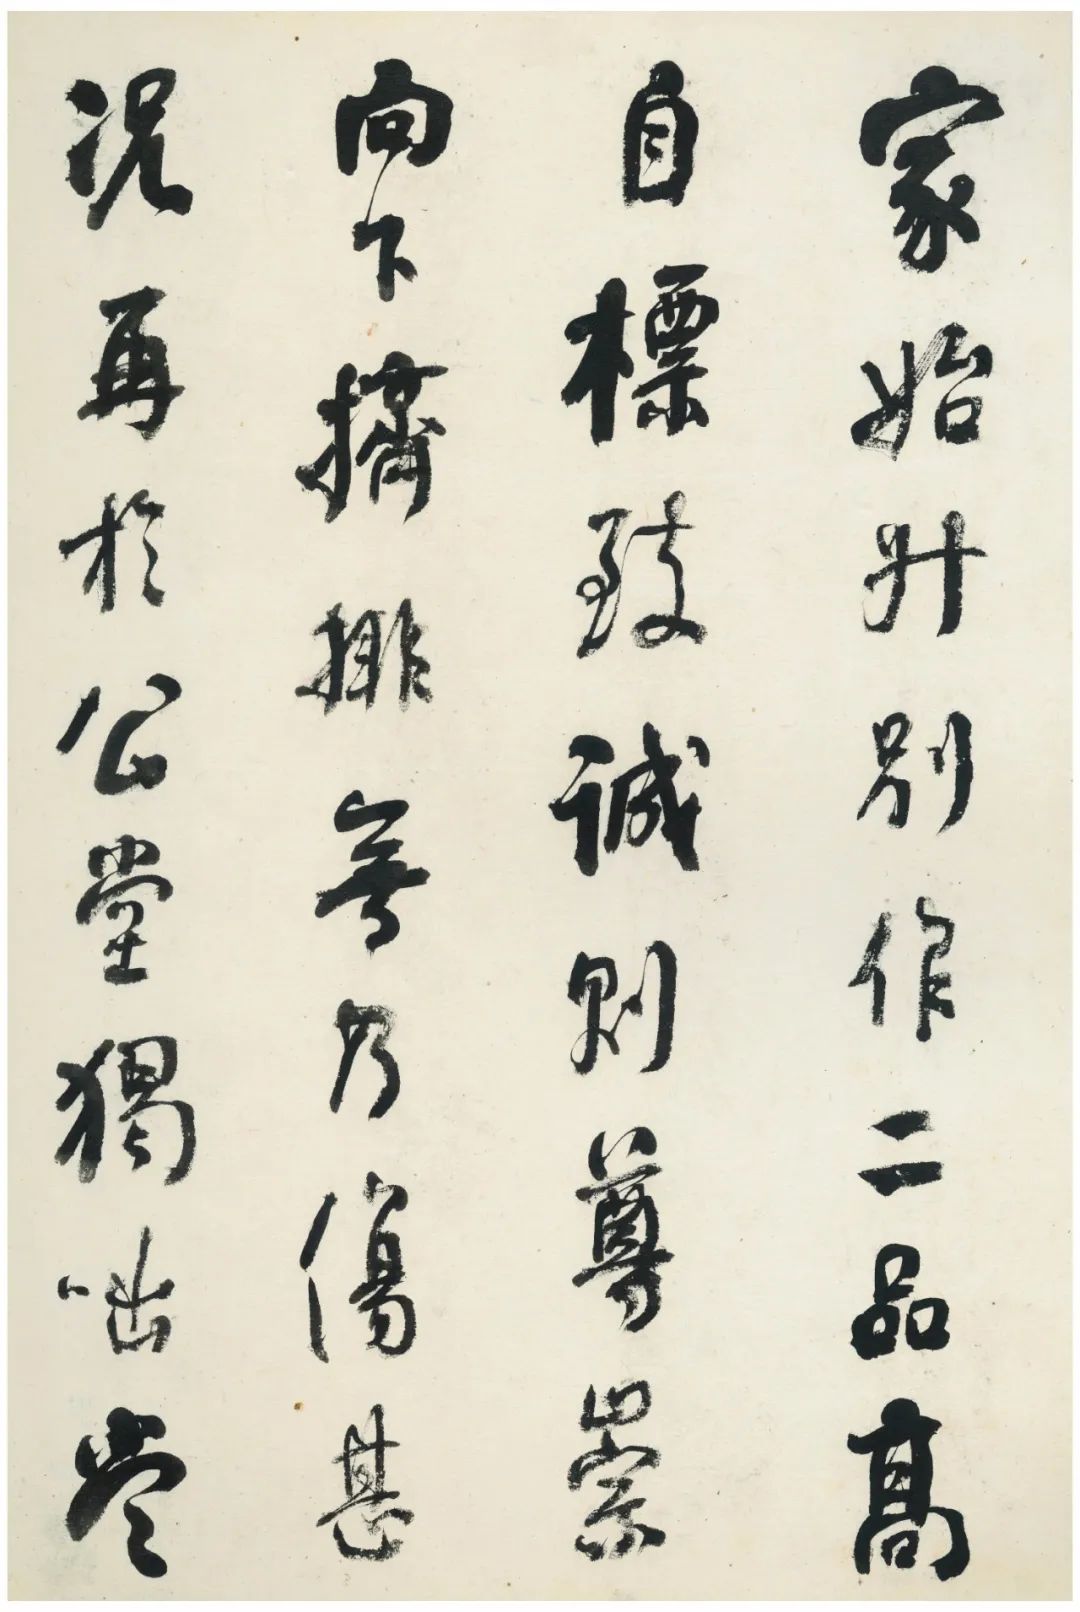 家始升別作二品高
自標致誠則尊崇
向下擠排無乃傷甚
況再於公堂猲咄常